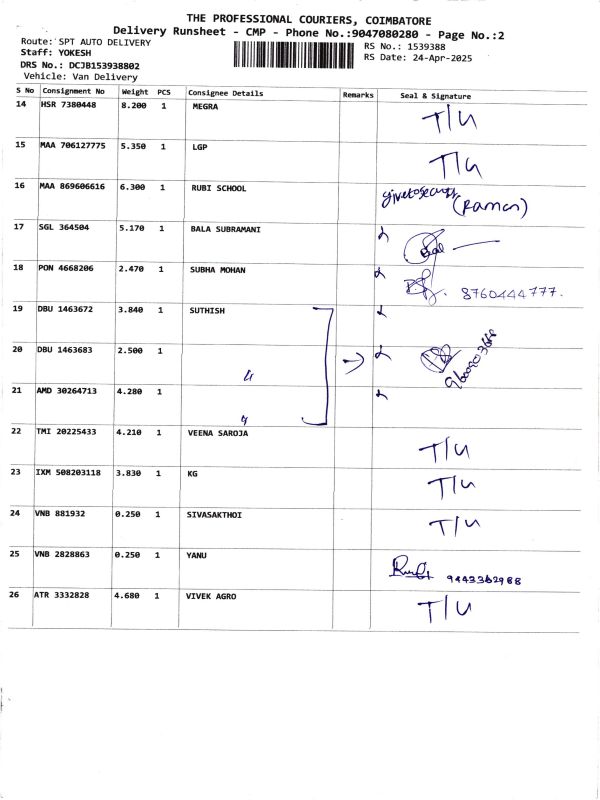 THE PROFESSIONAL COURIERS, COIMBATORE
Delivery Runsheet - CMP - Phone No.:9047080280 - Page No.:2
Route: SPT AUTO DELIVERY
Staff: YOKESH
DRS No.: DCJB153938802
Vehicle: Van Delivery
RS No.: 1539388
RS Date: 24-Apr-2025
S No Consignment No Weight PCS Consignee Details Remarks Seal & Signature
14 HSR 7380448 8.200 1 MEGRA T/U
15 MAA 706127775 5.350 1 LGP T/U
16 MAA 869606616 6.300 1 RUBI SCHOOL (Raman)
17 SGL 364504 5.170 1 BALA SUBRAMANI
18 PON 4668206 2.470 1 SUBHA MOHAN 8760444777.
19 DBU 1463672 3.840 1 SUTHISH
20 DBU 1463683 2.500 1 "
21 AMD 30264713 4.280 1 "
22 TMI 20225433 4.210 1 VEENA SAROJA T/U
23 IXM 508203118 3.830 1 KG T/U
24 VNB 881932 0.250 1 SIVASAKTHOI T/U
25 VNB 2828863 0.250 1 YANU 9443362988
26 ATR 3332828 4.680 1 VIVEK AGRO T/U